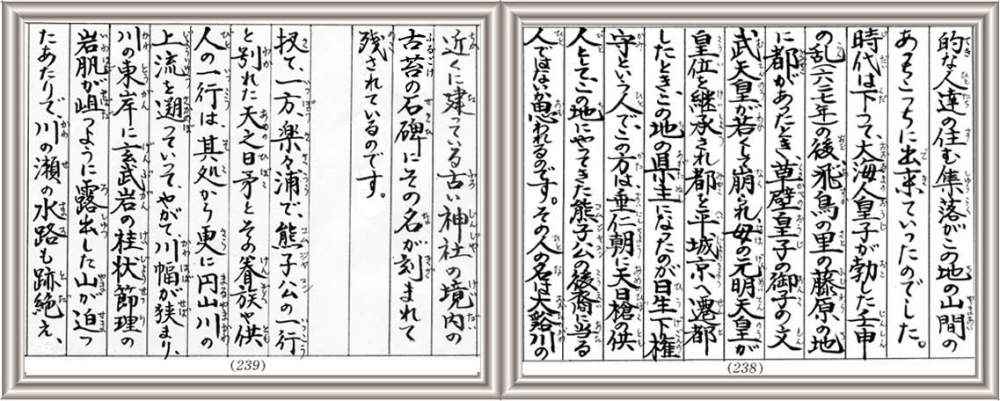 的な人達の住む集落がこの地の山間の
あちこちに出来ていったのでした。
時代は下って、大海人皇子が勃した壬申
の乱六七二年の後、飛鳥の里の藤原の地
に都があったとき、草壁皇子の御子の文
武天皇が若くして崩られ、母の元明天皇が
皇位を継承され都を平城京へ遷都
したとき、この地の県主になったのが日生下権
守といった人で、この方は垂仁朝に天日槍の供
人として、この地にやってきた熊子公の後裔に当る
人ではないか思われるのです。その人の名は大谿川の
(238)
近くに建っている古い神社の境内の
古苔の石碑にその名が刻まれて
残されているのです。
扨て、一方、楽々浦で、熊子公の一行
と別れた天之日矛とその眷族や供
人の一行は、其処から更に円山川の
上流を遡っていって、やがて、川幅が狭まり、
川の東岸に玄武岩の柱状節理の
岩肌が峙つように露出した山が迫っ
たあたりで、川の瀬の水路も跡絶え、
(239)